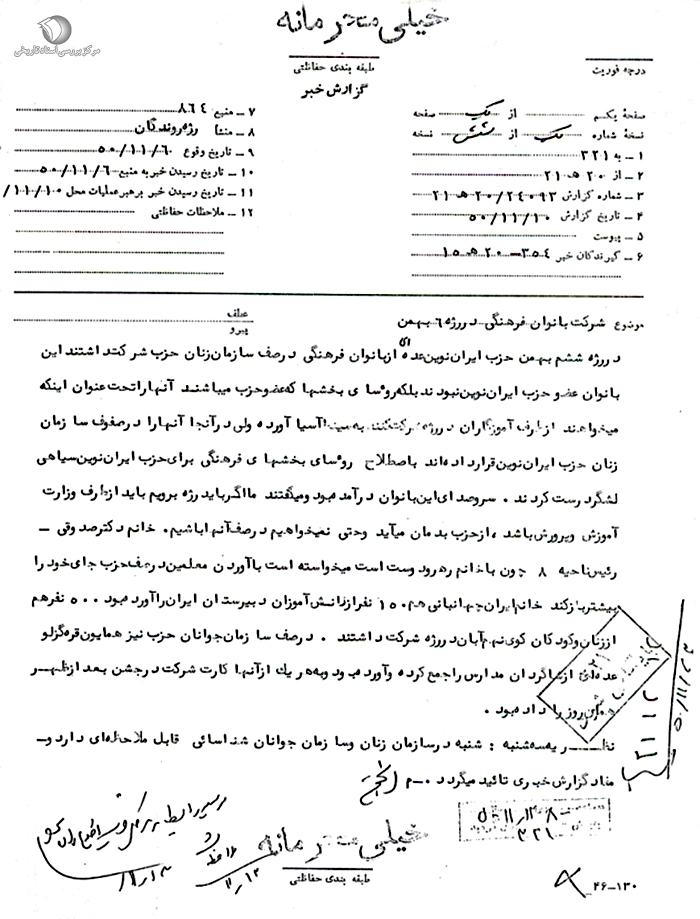 خیلی محرمانه
مرکز بررسی اسناد تاریخی
طبقه بندی حفاظتی
گزارش خبر
درجه فوریت
صفحهٔ یکم از یک صفحه
نسخهٔ شماره یک از شش نسخه
۱ ـ به ۳۲۱
۲ ـ از ۲۰ هـ ۲۱
۳ ـ شماره گزارش ۲۰/۲۴۰۹۳ هـ ۲۱
۴ ـ تاریخ گزارش ۵۰/۱۱/۱۰
۵ ـ پیوست
۶ ـ گیرندگان خبر ۳۵۴ـ ۲۰ هـ ۱۵
۷ ـ منبع ۸۶۴
۸ ـ منشأ رژه روندگان
۹ ـ تاریخ وقوع ۵۰/۱۱/۶
۱۰ ـ تاریخ رسیدن خبر به منبع ۵۰/۱۱/۶
۱۱ ـ تاریخ رسیدن خبر برهبر عملیات محل /۱۱/۱۰
۱۲ ـ ملاحظات حفاظتی
موضوع شرکت بانوان فرهنگی در رژه ۶ بهمن
عطف
پیرو
در رژه ششم بهمن حزب ایران نوین عده ای از بانوان فرهنگی در صف سازمان زنان حزب شرکت داشتند این
بانوان عضو حزب ایران نوین نبودند بلکه روسای بخشها که عضو حزب میباشند آنها را تحت عنوان اینکه
میخواهند از طرف آموزگاران در رژه شرکت کنند به سینما آسیا آورده ولی در آنجا آنها را در صفوف سازمان
زنان حزب ایران نوین قرار داده اند باصطلاح روسای بخشهای فرهنگی برای حزب ایران نوین سیاهی
لشگر درست کردند . سروصدای این بانوان درآمده بود و میگفتند ما اگر باید رژه برویم باید از طرف وزارت
آموزش وپرورش باشد ، از حزب بدمان میآید وحتی نمیخواهیم در صف آنها باشیم . خانم دکتر صدوقی ـ
رئیس ناحیه ۸ چون با خانم رهرو دوست است میخواسته است با آوردن معلمین در صف حزب جای خود را
بیشتر باز کند خانم ایران جهانبانی هم ۱۵۰ نفر از دانش آموزان دبیرستان ایران را آورده بود . ۵۰۰ نفر هم
از زنان و کودکان کوی نهم آبان در رژه شرکت داشتند . در صف سازمان جوانان حزب نیز همایون قره گزلو
عده ای از شاگردان مدارس را جمع کرده و آورده بود و به هر یک از آنها کارت شرکت در جشن بعد از ظهر
همان روز را داده بود .
نظریه سه شنبه : شنبه در سازمان زنان وسازمان جوانان شناسائی قابل ملاحظه ای دارد و ـ
مفاد گزارش خبری تائید میگردد . م
۵۰/۱۱/۸
۳۲۱
خیلی محرمانه
طبقه بندی حفاظتی
۴۶ـ۱۳۰